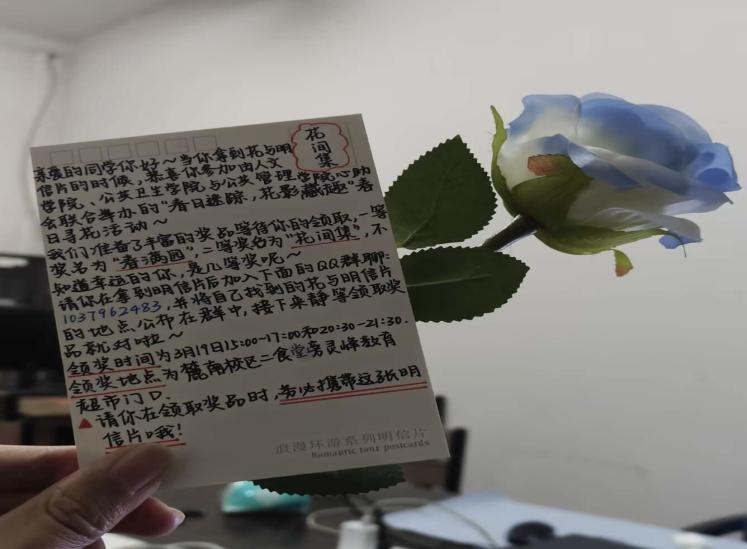 花
间
集
亲爱的同学你好~当你拿到花与明
信片的时候，恭喜你参加由人文
学院、公共卫生学院与公共管理学院心助
会联合举办的“春日迷踪，花影藏趣”春
日寻花活动~
我们准备了丰富的奖品等待你的领取，一等
奖名为“春满园”，二等奖名为“花间集”，不
知道幸运的你，是几等奖呢~
请你在拿到明信片后加入下面的QQ群聊:
1037962483，并将自己找到的花与明信片
的地点公布在群中，接下来静等领取奖
品就对啦~
领奖时间为3月19日15:00-17:00和20:30-21:30.
领奖地点为麓南校区二食堂旁灵峰教育
超市门口.
▲请你在领取奖品时，务必携带这张明
信片哦!
浪漫环游系列明信片
Romantic tour postcards